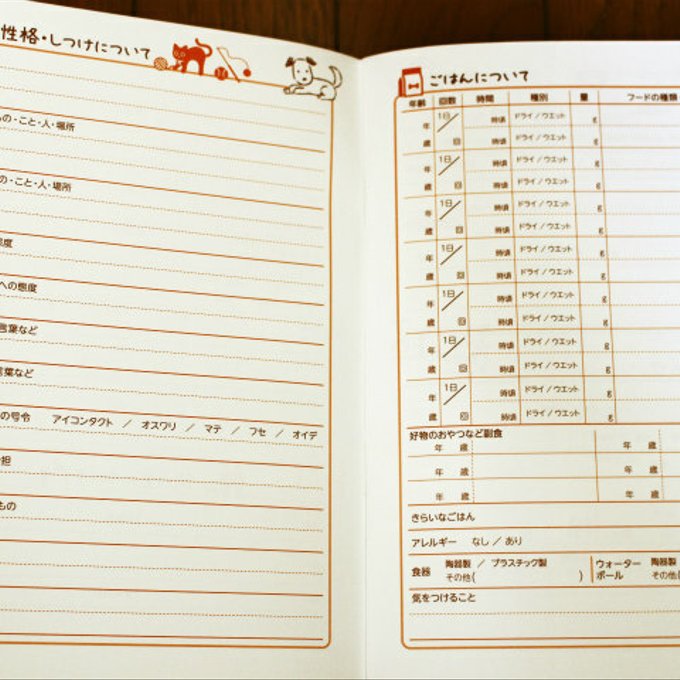 性格・しつけについて
の・こと・人・場所
の・こと・人・場所
態度
への態度
言葉など
言葉など
の号令 アイコンタクト ／ オスワリ ／ マテ ／ フセ ／ オイデ
担
もの
ごはんについて
年齢 回数 時間 種別 量 フードの種類
年 1日／ 時頃 ドライ／ウエット g
歳 回 時頃 ドライ／ウエット
年 1日／ 時頃 ドライ／ウエット g
歳 回 時頃 ドライ／ウエット
年 1日／ 時頃 ドライ／ウエット g
歳 回 時頃 ドライ／ウエット
年 1日／ 時頃 ドライ／ウエット g
歳 回 時頃 ドライ／ウエット
年 1日／ 時頃 ドライ／ウエット g
歳 回 時頃 ドライ／ウエット
年 1日／ 時頃 ドライ／ウエット g
歳 回 時頃 ドライ／ウエット
年 1日／ 時頃 ドライ／ウエット g
歳 回 時頃 ドライ／ウエット
好物のおやつなど副食
年 歳 年 歳
年 歳 年 歳
年 歳 年 歳
きらいなごはん
アレルギー なし ／ あり
食器 陶器製 ／ プラスチック製 その他( )
ウォーターボール 陶器製 その他(
気をつけること